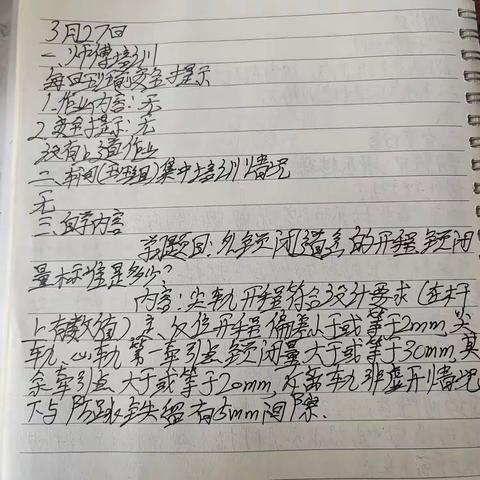 3月27日
一、师傅培训
每日现场安全提示
1.作业内容：无
2.安全提示：无
没有上道作业
二、车间(班组)集中培训情况
无
三、自学内容
题目：外锁闭道岔的开程、锁闭
量标准是多少？
内容：尖轨开程符合设计要求(连杆
上有数值)定、反位开程偏差小于或等于2mm,尖
轨、心轨第一牵引点锁闭量大于或等于30mm,其
余牵引点大于或等于20mm,轨非开情况
下与防跳铁留有3mm间隙.